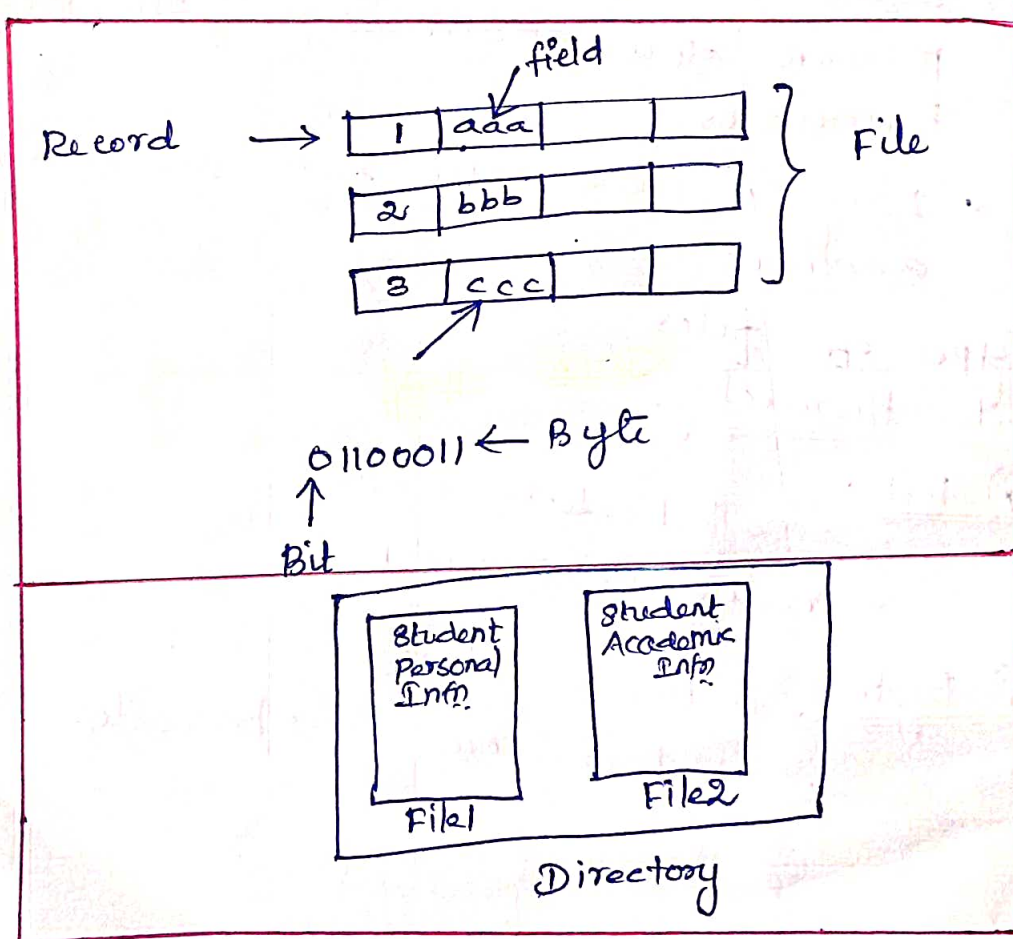 field
Record
1 aaa
File
2 bbb
3 ccc
01100011 ← Byte
Bit
Student
Personal
Infn.
File1
Student
Academic
Infn.
File2
Directory